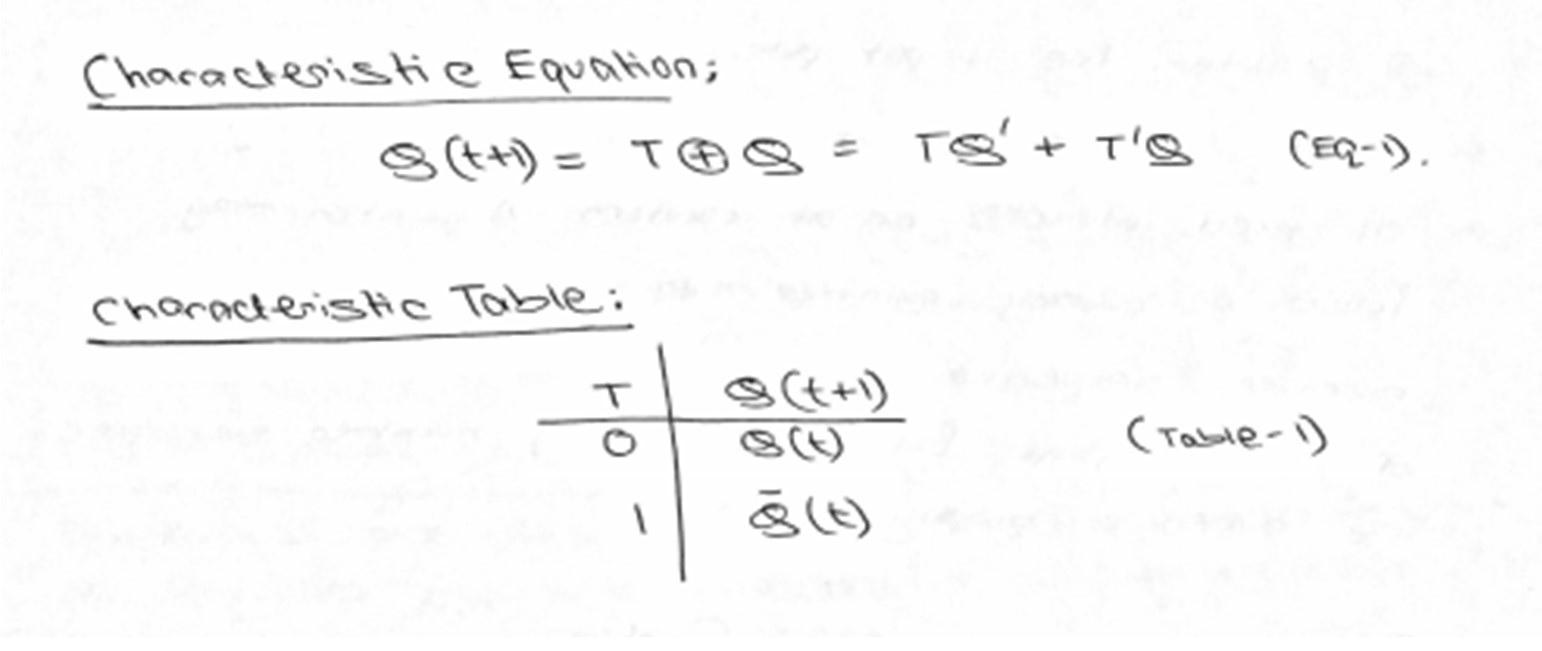 Characteristic Equation;
Q(t+1) = T⊕Q = TQ' + T'Q (EQ-1).
Characteristic Table:
T | Q(t+1)
0 | Q(t) (Table-1)
1 | Q̄(t)